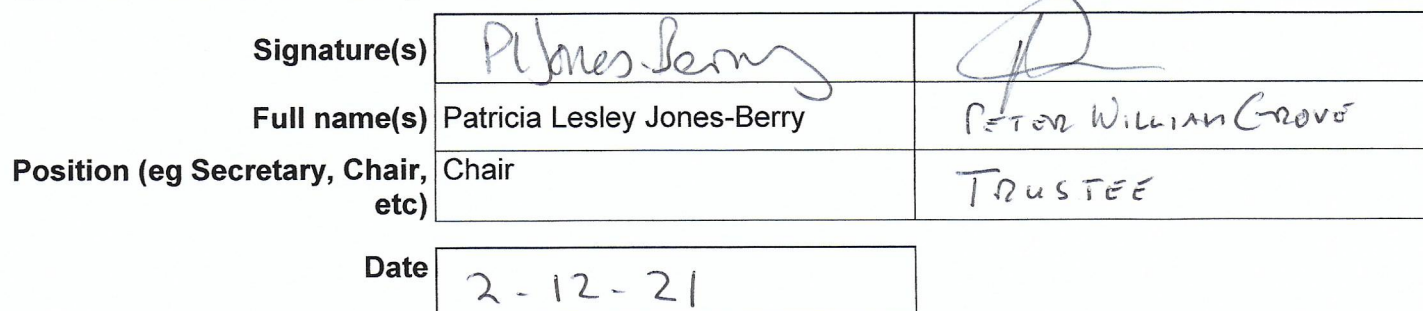 Signature(s) PL Jones-Berry
Full name(s) Patricia Lesley Jones-Berry PETER WILLIAM GROVE
Position (eg Secretary, Chair, Chair TRUSTEE
etc)
Date 2-12-21